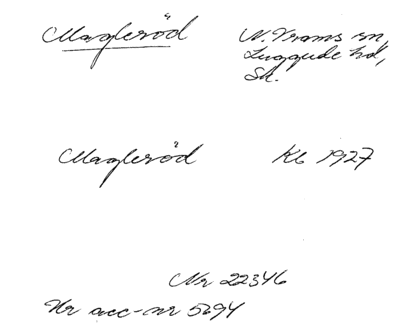 Magleröd N. Vrams sn,
Luggude hd,
Sk.
Magleröd Kb 1927
Nr 22346
Ur acc-nr 5694